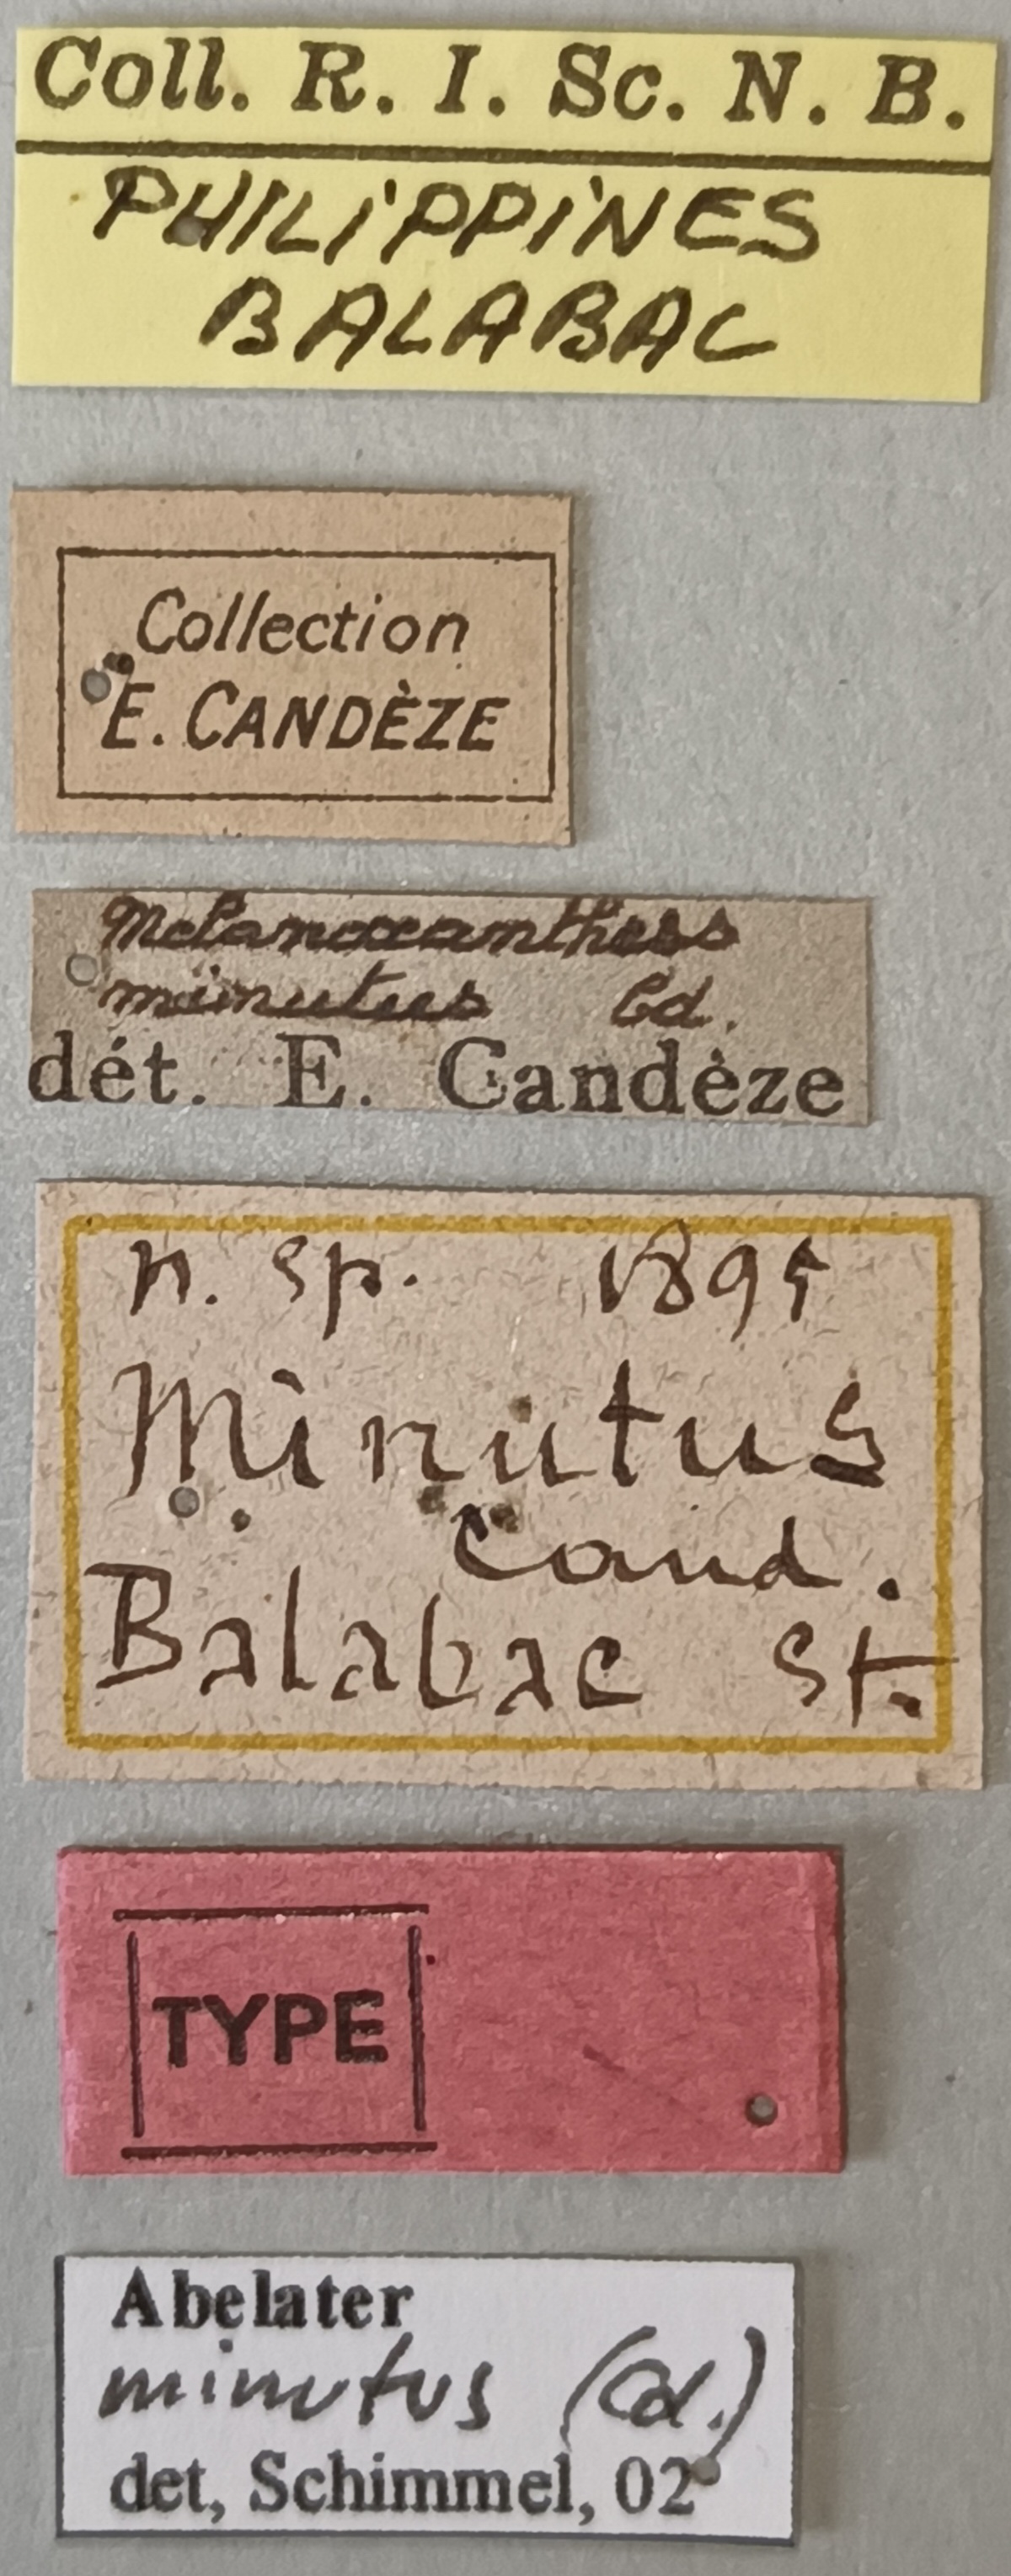 Coll. R. I. Sc. N. B.
PHILIPPINES
BALABAC
Collection
E. CANDÈZE
Melanoxanthus
minutus Cd.
dét. E. Candèze
n. sp. 1895
Minutus
Cand.
Balabac st.
TYPE
Abelater
minutus (Cd.)
det, Schimmel, 02